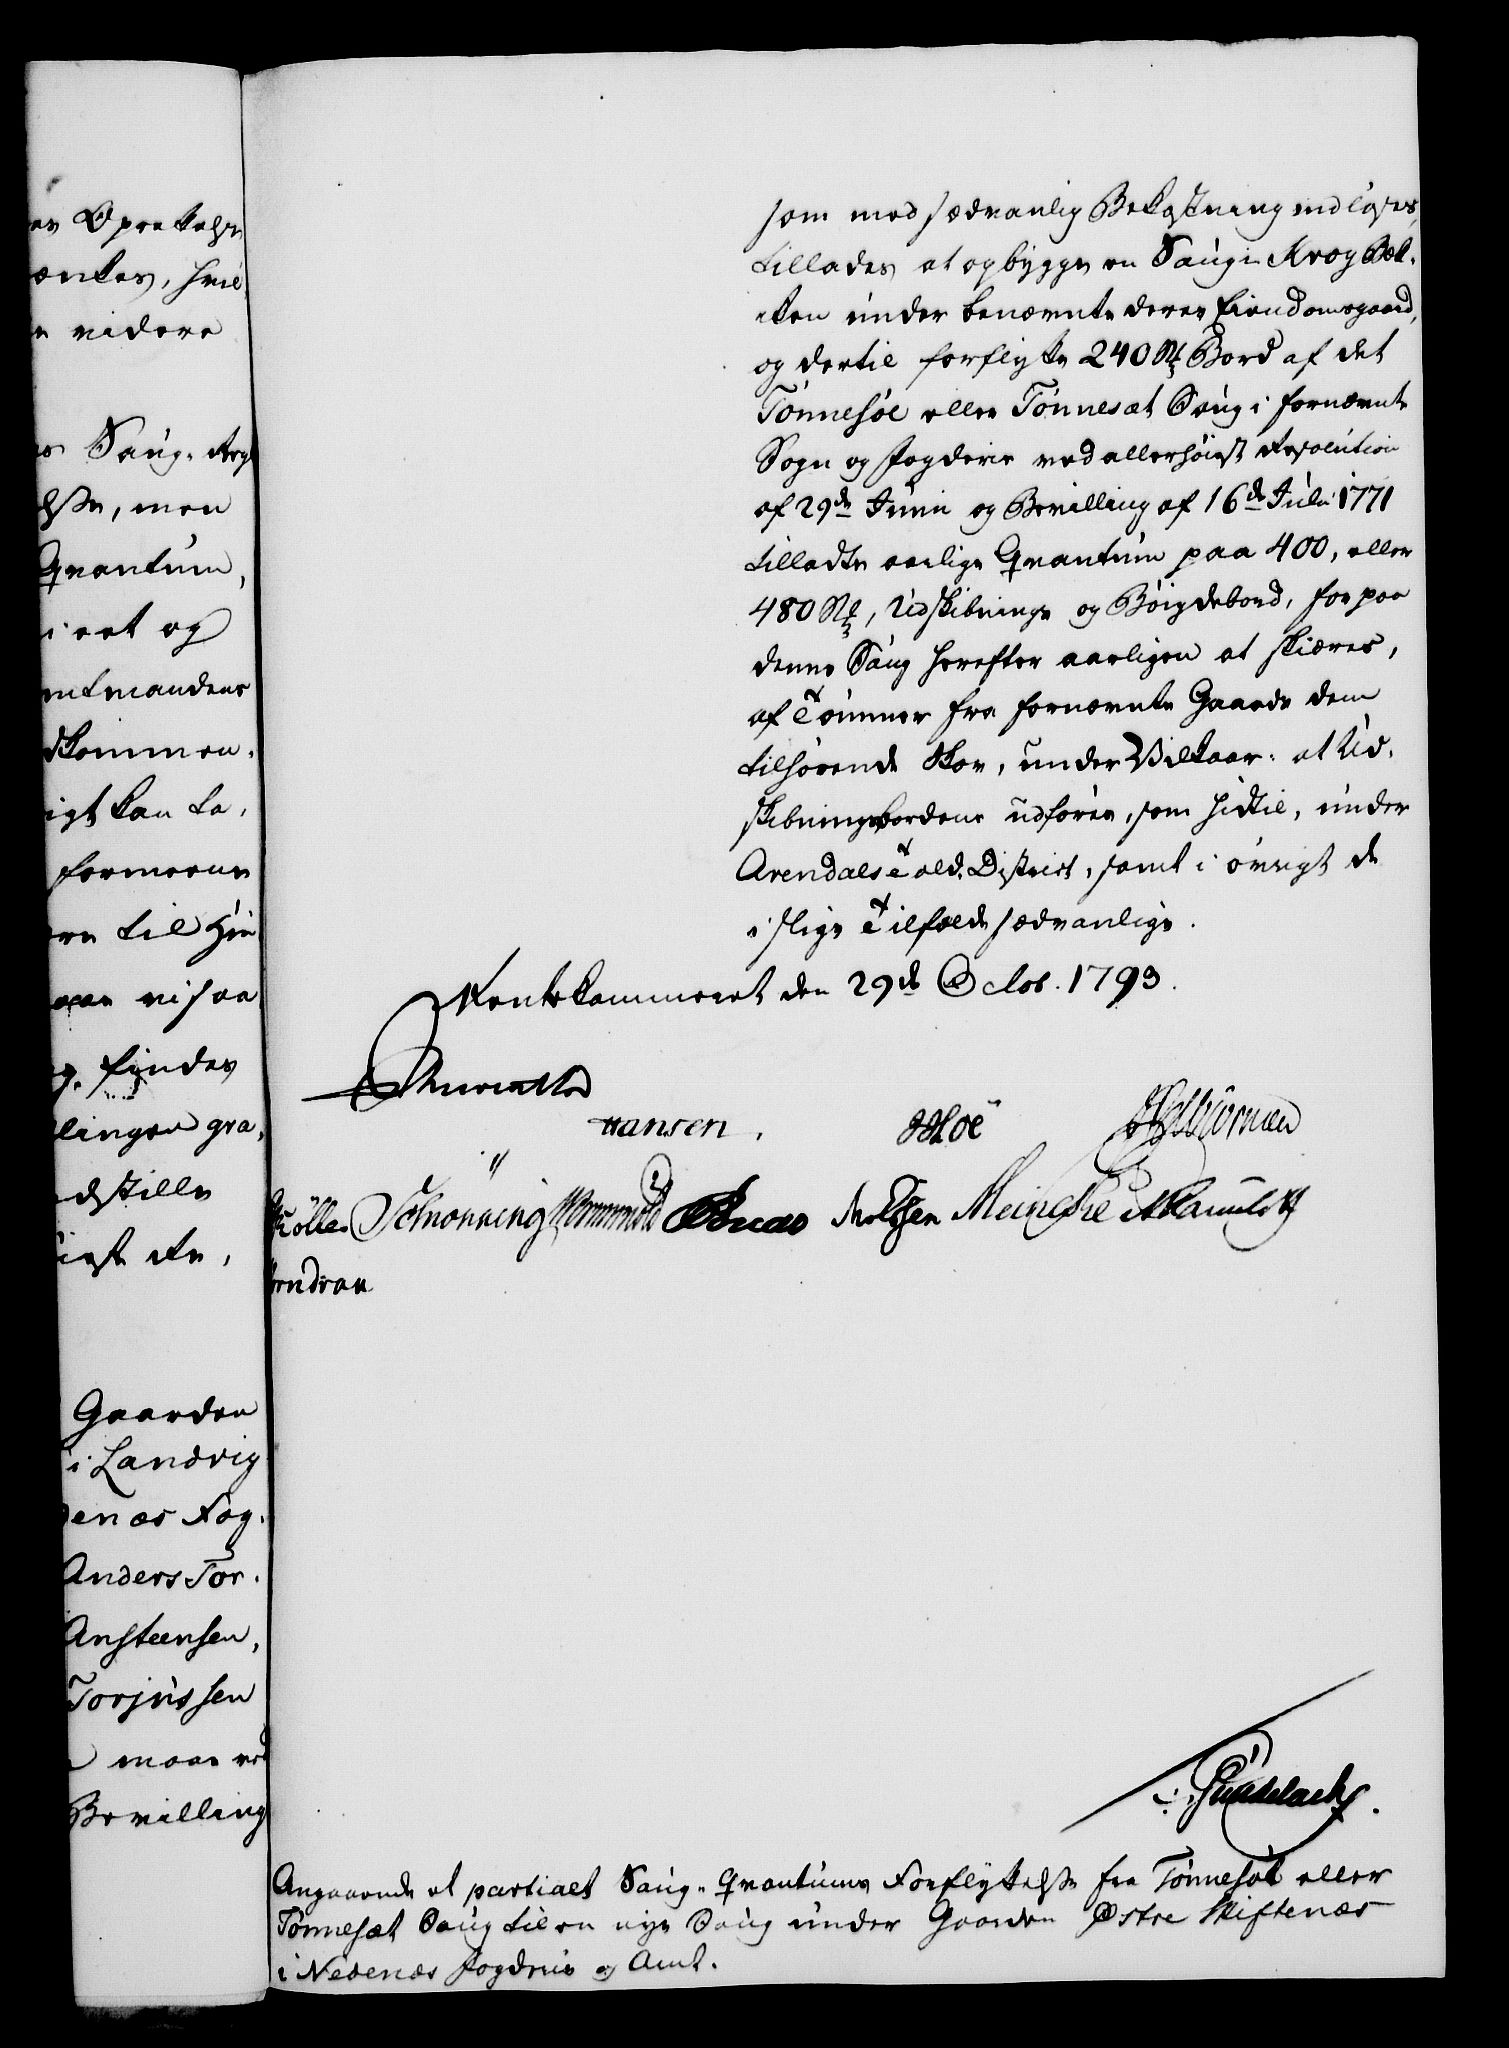 er Oprettelse
ænkes, hvil
e videre
Saug-
else, men
Qvantum,
i eet og
mtmandens
dkommen,
igt kan ta,
formeene
ere til Hin
maae vi saa
findes
lingen gra,
dstille
Gaarden
i Landvig
denæs Fog-
Anders Tor-
Ansteensen,
Torjussen
maae ved
Bevilling
som med sædvanlig Bekostning indløses,
tillades at opbygge en Saug i Krog Bæk-
ken under benævnte deres Eiendomsgaard,
og dertil forflytte 240 Bord af det
Tønnesøe eller Tønnesæt Saug i fornævnte
Sogn og Fogderie ved allerhøiest Resolution
af 29de Junii og Bevilling af 16de Julii 1771
tilladte aarlige Qvantum paa 400, eller
480, Udskibnings og Bøigdebord, for paa
denne Saug herefter aarligen at skiæres,
af Tømmer fra fornævnte Gaards dem
tilhørende Skov, under Vilkaar: at Ud-
skibningsbordene udføres, som hidtil, under
Arendals Told-District, samt i øvrigt de
i slige Tilfælde sædvanlige.
Rentekammeret den 29de Octob. 1793.
Hansen.
Schiønning Wormskiold Meincke
Angaaende et partialt Saug-Qvantums Forflyttelse fra Tønnesøe eller
Tønnesæt Saug til en nye Saug under Gaarden Østre Skiftenæs
i Nedenæs Fogderie og Amt.